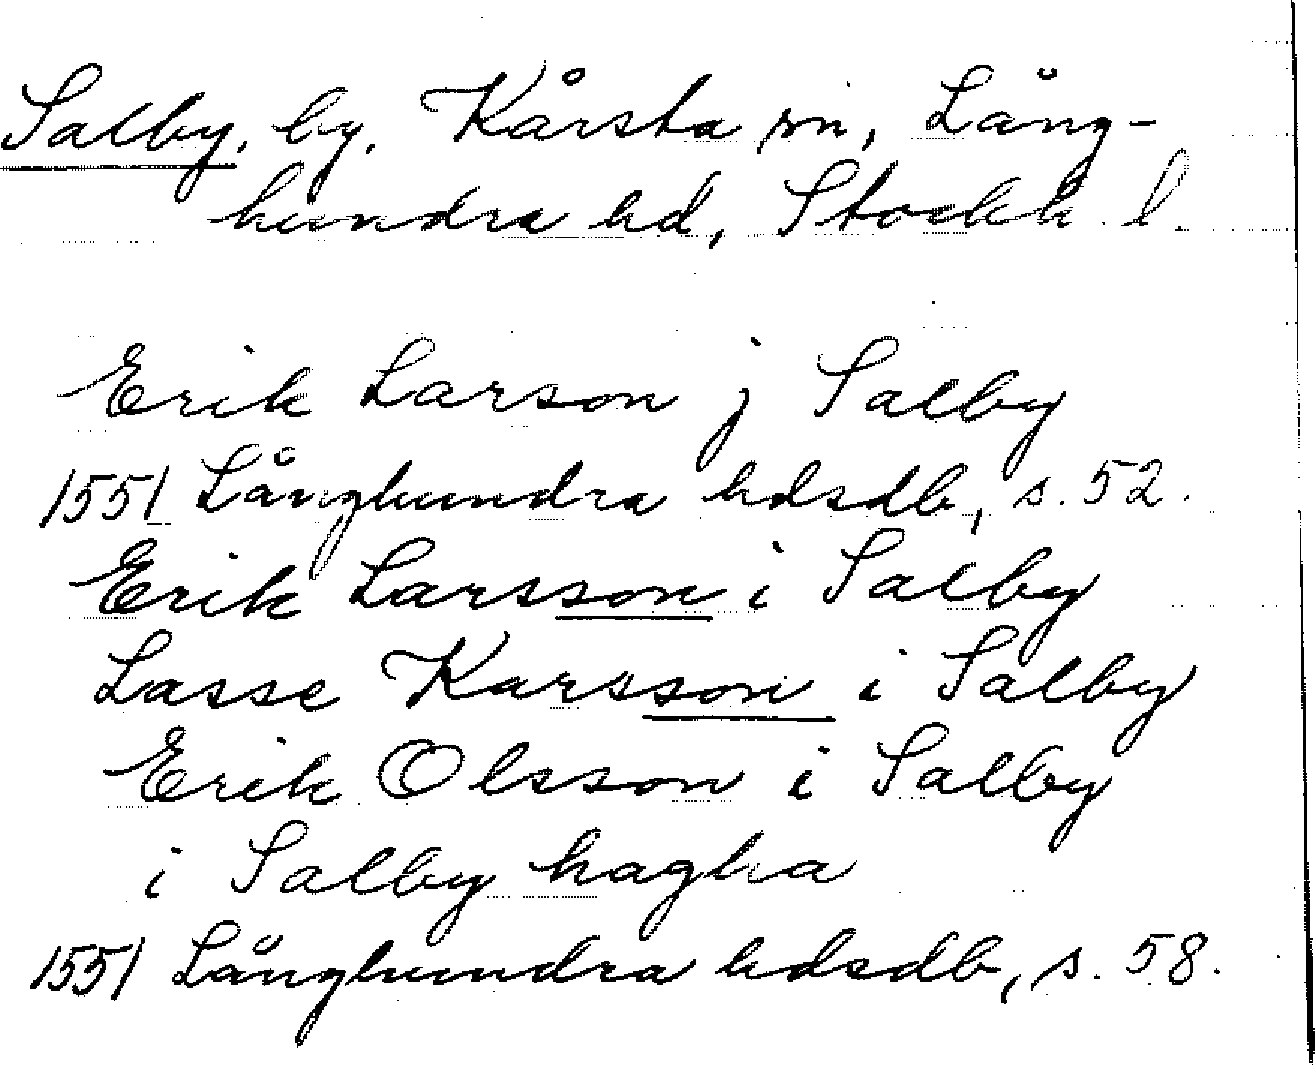 Salby, by, Kårsta sn, Lång-
hundra hd, Stockh. l.
Erik Larson j Salby
1551 Långhundra hdsdb, s. 52.
Erik Larsson i Salby
Lasse Karsson i Salby
Erik Olsson i Salby
i Salby hagha
1551 Långhundra hdsdb, s. 58.